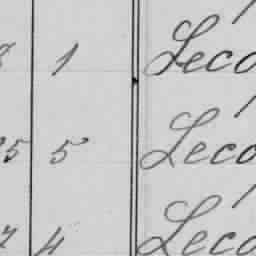 1 Leco
5 5 Leco
4 Leco